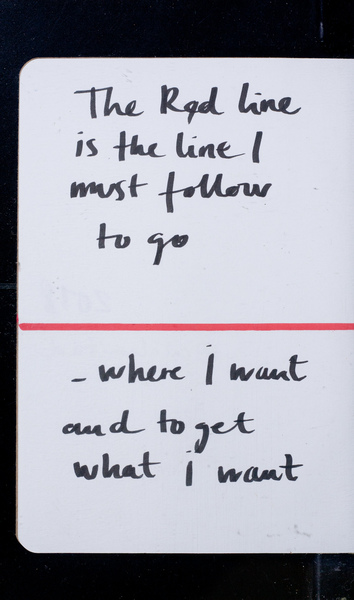 The Red line
is the line I
must follow
to go
- where i want
and to get
what i want